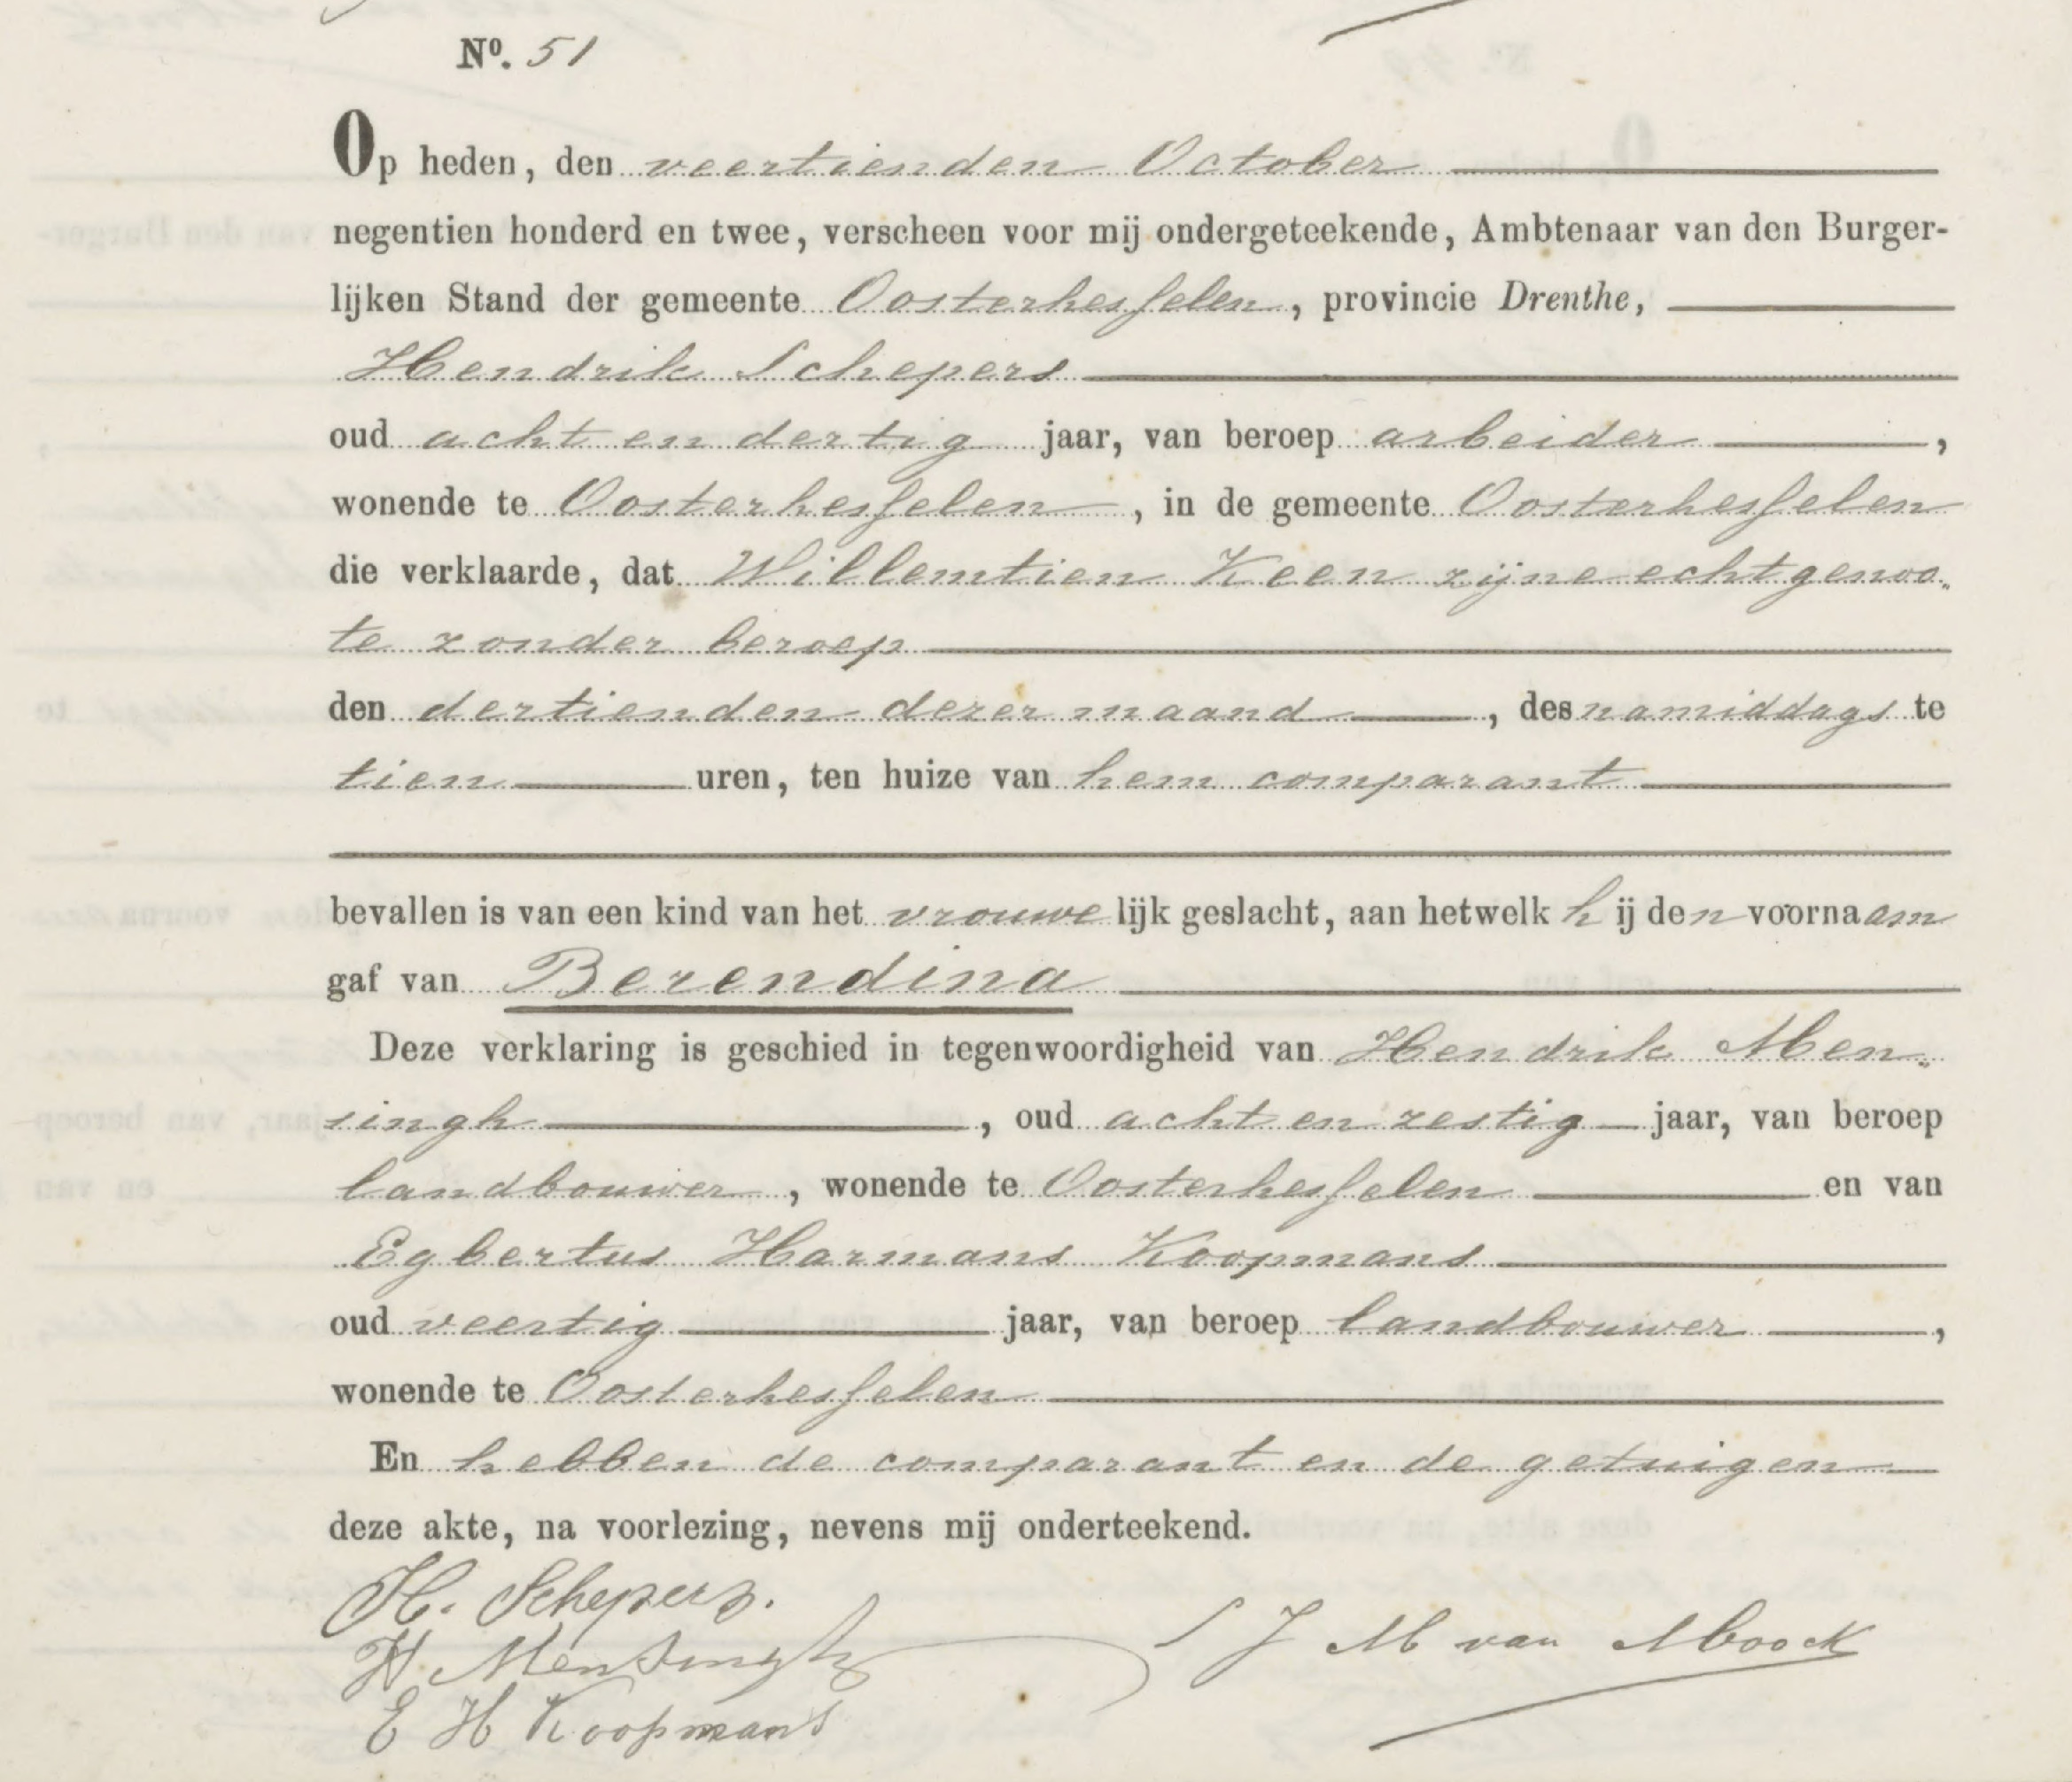 Nº. 51
Op heden, den veertienden October
negentien honderd en twee, verscheen voor mij ondergeteekende, Ambtenaar van den Burger-
lijken Stand der gemeente Oosterhesselen, provincie Drenthe,
Hendrik Schepers
oud acht en dertig jaar, van beroep arbeider,
wonende te Oosterhesselen, in de gemeente Oosterhesselen
die verklaarde, dat Willemtien Keen zijne echtgenoo„
te zonder beroep
den dertienden dezer maand, des namiddags te
tien uren, ten huize van hem comparant
bevallen is van een kind van het vrouwelijk geslacht, aan hetwelk hij den voornaam
gaf van Berendina
Deze verklaring is geschied in tegenwoordigheid van Hendrik Men„
singh, oud acht en zestig jaar, van beroep
landbouwer, wonende te Oosterhesselen en van
Egbertus Harmans Koopmans
oud veertig jaar, van beroep landbouwer,
wonende te Oosterhesselen
En hebben de comparant en de getuigen
deze akte, na voorlezing, nevens mij onderteekend.
H. Schepers.
H. Mensingh
E H Koopmans
J M van Moock